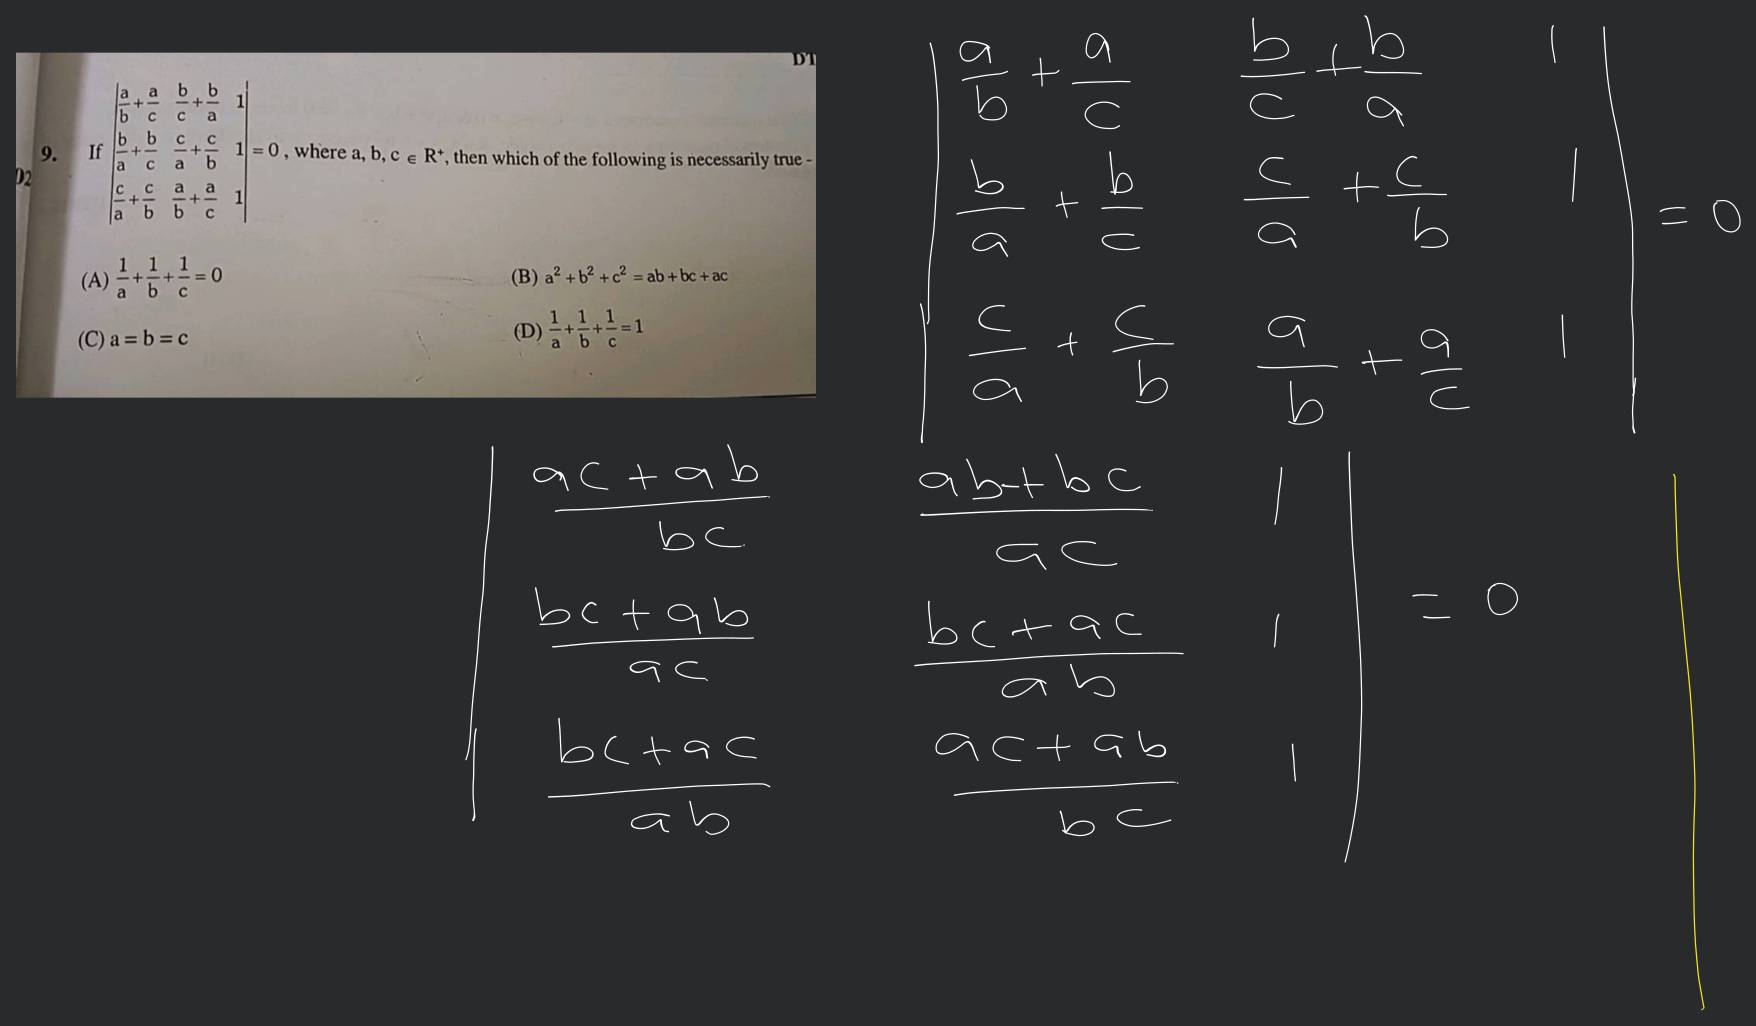 DT
9. If | a/b + a/c b/c + b/a 1 |
| b/a + b/c c/a + c/b 1 | = 0, where a, b, c ∈ R⁺, then which of the following is necessarily true -
| c/a + c/b a/b + a/c 1 |
02
(A) 1/a + 1/b + 1/c = 0
(B) a² + b² + c² = ab + bc + ac
(C) a = b = c
(D) 1/a + 1/b + 1/c = 1
| a/b + a/c b/c + b/a 1 |
| b/a + b/c c/a + c/b 1 | = 0
| c/a + c/b a/b + a/c 1 |
| (ac + ab)/bc (ab + bc)/ac 1 |
| (bc + ab)/ac (bc + ac)/ab 1 | = 0
| (bc + ac)/ab (ac + ab)/bc 1 |